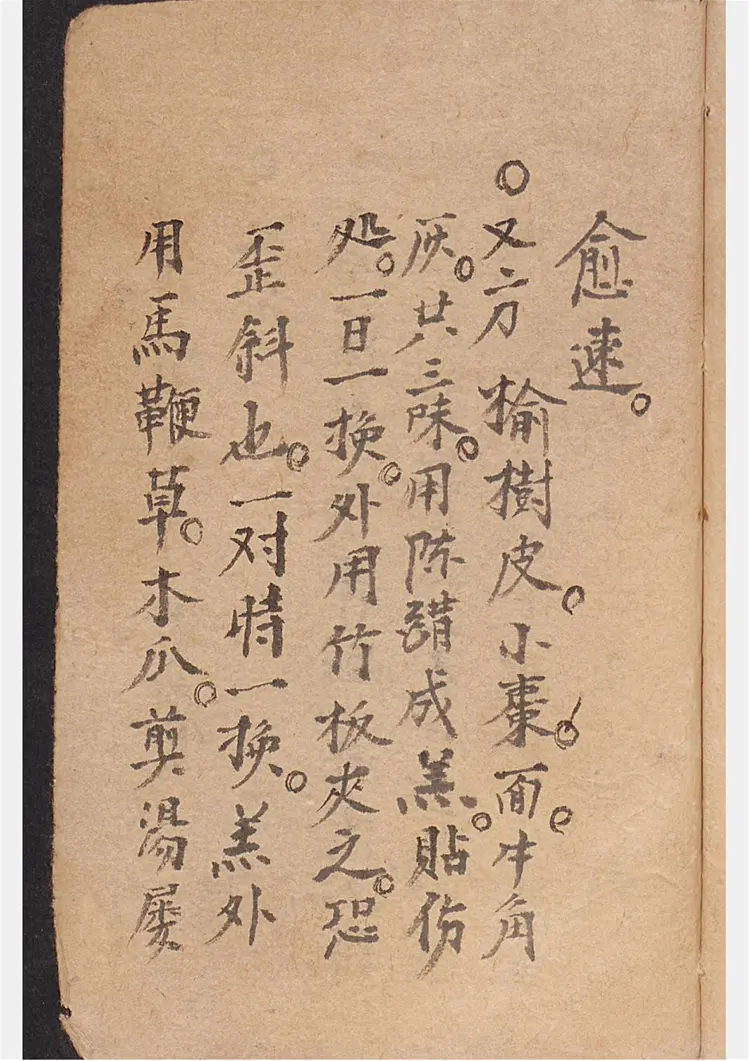 愈速。
○又一方 榆樹皮。小棗。面。牛角
灰。共三味。用陈醋成羔。貼伤
处。一日一换。外用竹板夾之。恐
歪斜也。一对時一换。羔外
用馬鞭草。木瓜。煎湯屡